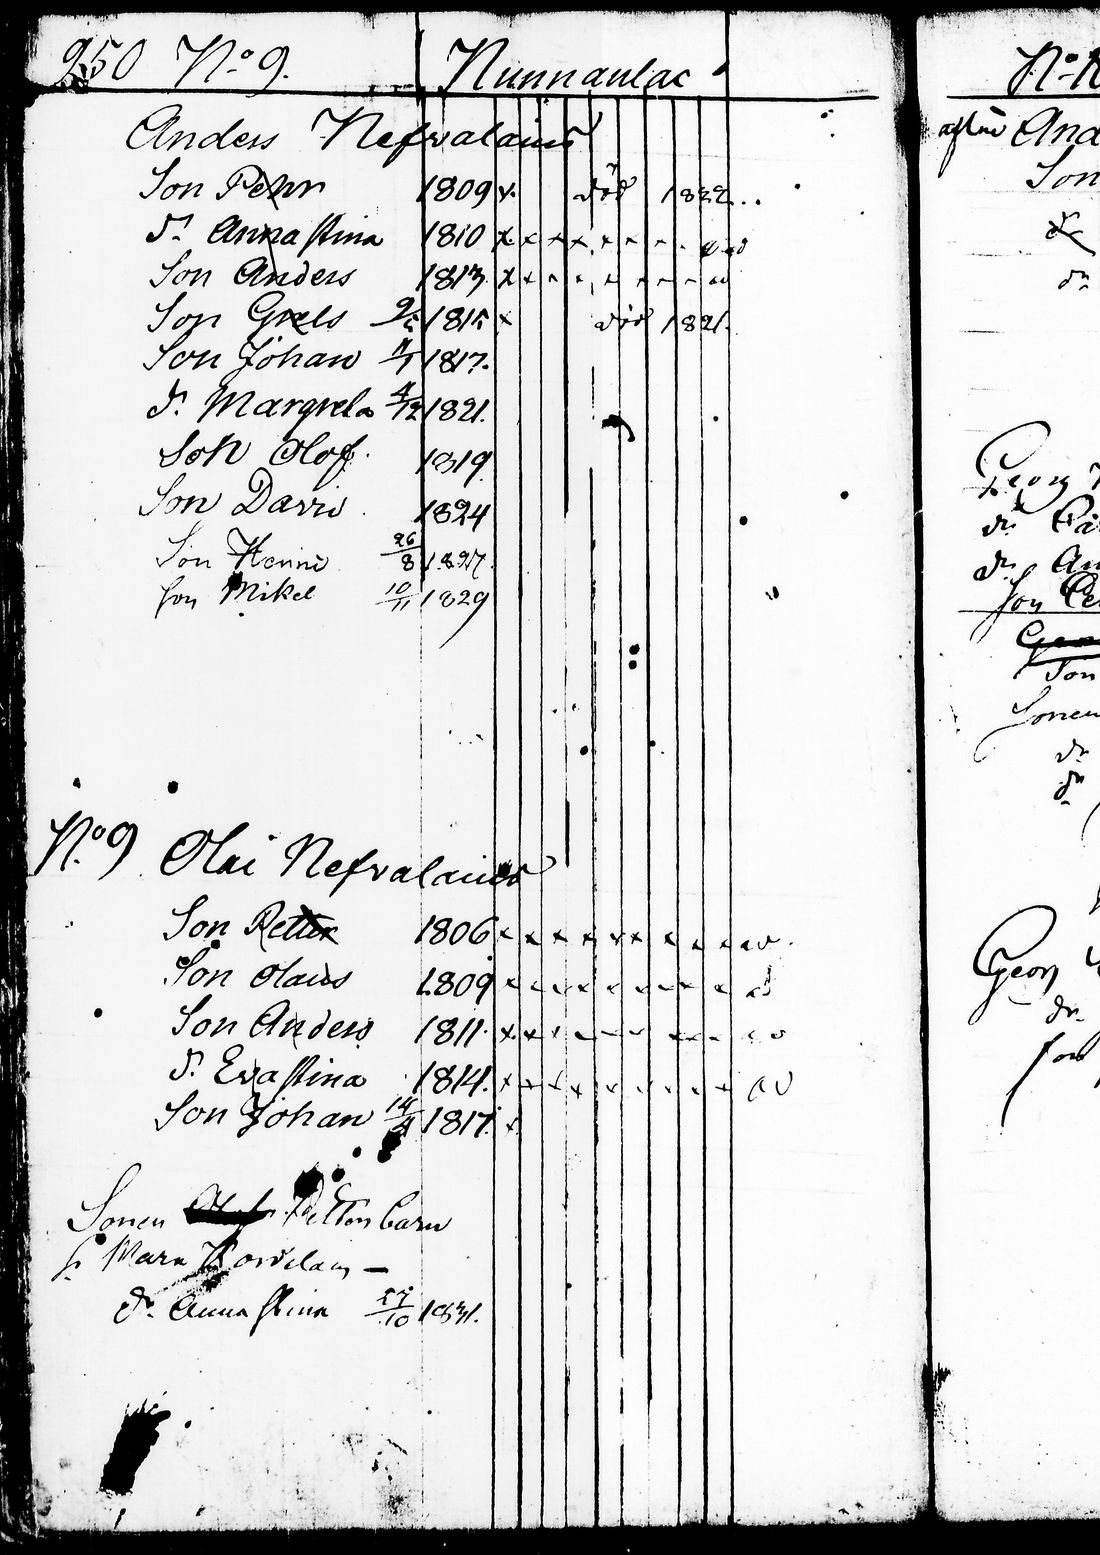 250 No 9. Nunnanlax
Anders Nefvalainˢ
Son Pehr 1809 x. död 1822
dr. Anna Stina 1810 x x x x x
Son Anders 1813 x x
Son Grels 9/5 1815 x död 1821.
Son Johan 11/1 1817.
dr. Margreta 4/12 1821.
Son Olof. 1819
Son David 1824
Son Henric 26/8 1827.
Son Mikel 10/11 1829
No 9 Olai Nefvalainˢ
Son Petter 1806 x x x x x x x x x
Son Olaus 1809 x
Son Anders 1811. x x
dr. Eva Stina 1814. x x x x
Son Johan 14/4 1817 x
Sonen Petters barn
h. Maria
dr. Anna Stina 27/10 1831.
No
And
Son
dr
Georg
dr
dr An
Son Pe
Son
Sonen
dr
dr
Georg
dr.
Son